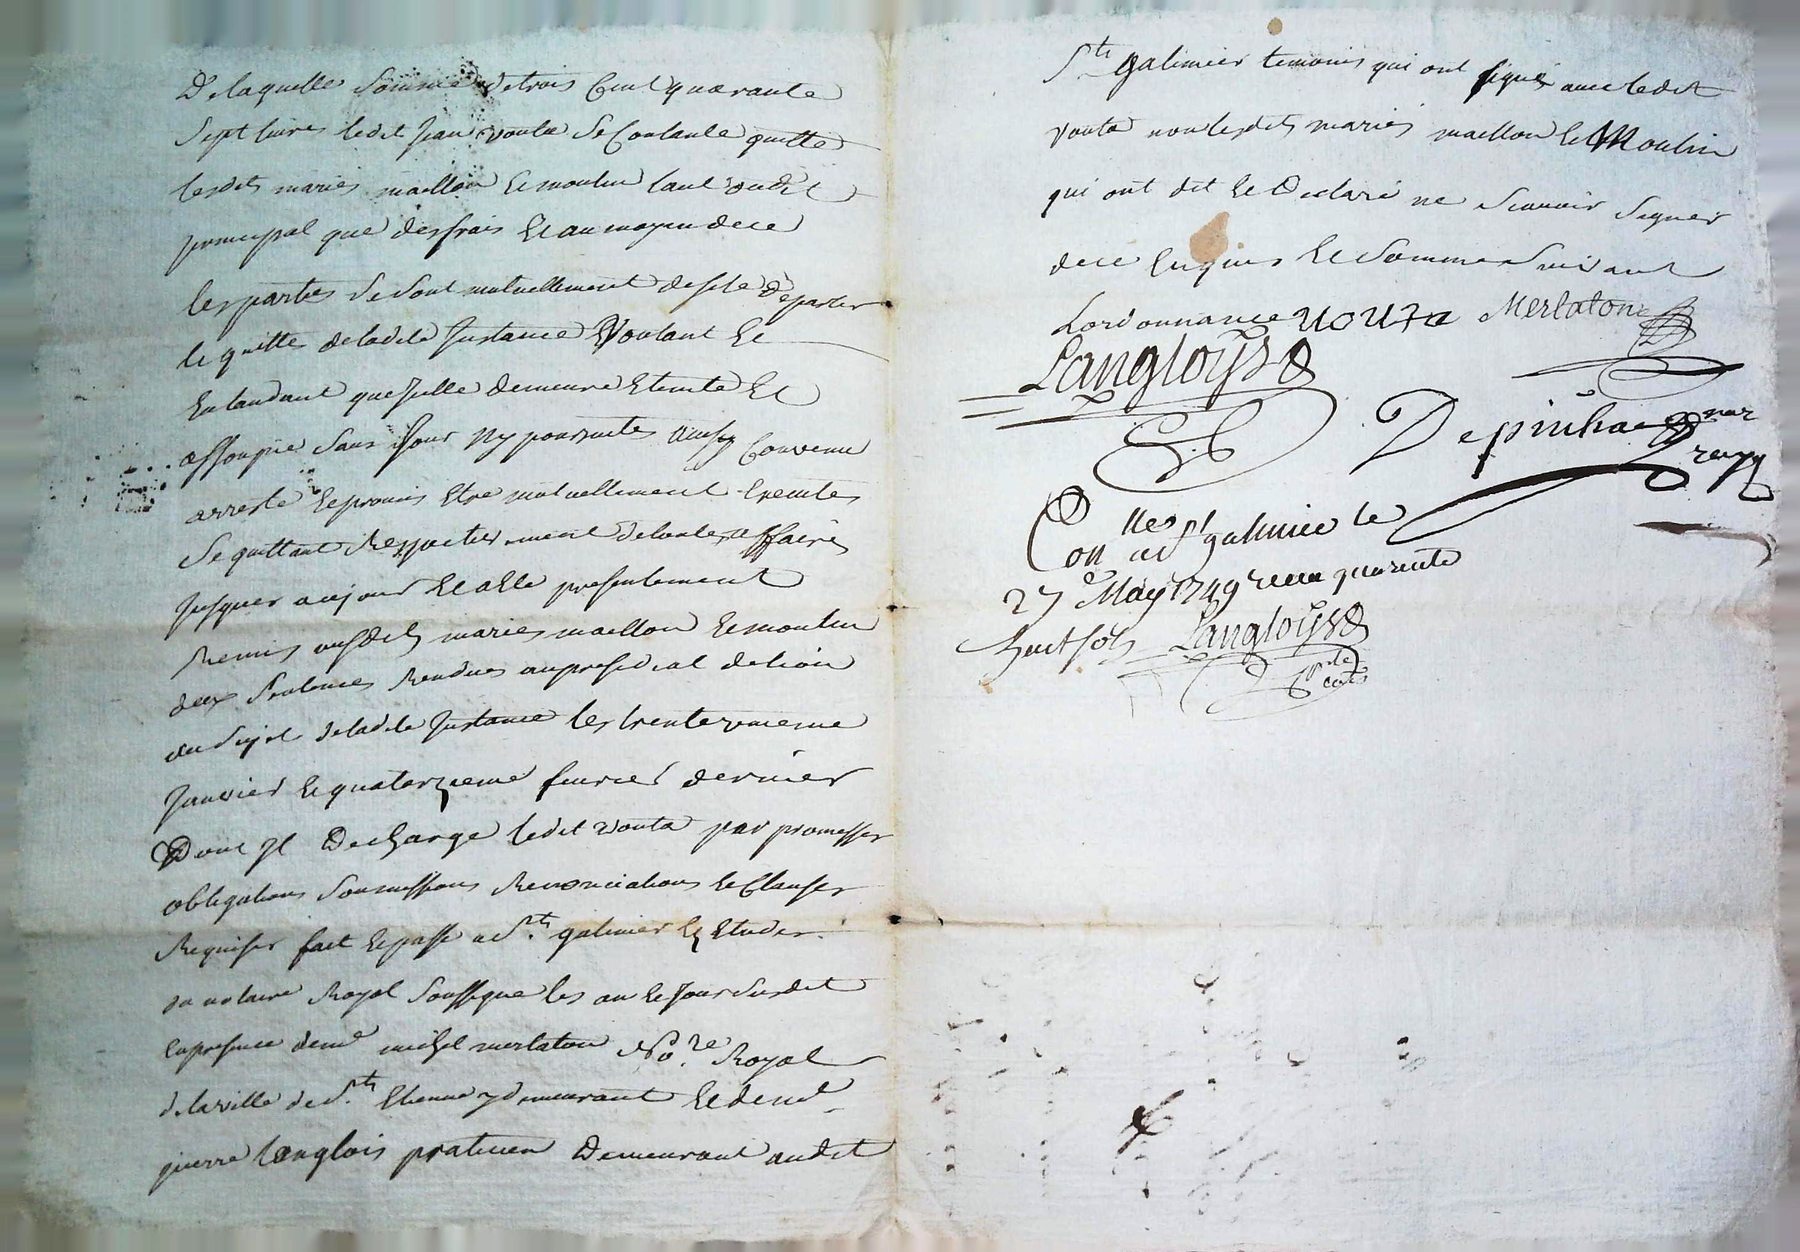 De laquelle somme de trois Cent quarante
Sept livres ledit Jean vouta se Contante quitte
lesdits mariés maillon Et moulin tant dudit
principal que des frais Et au moyen de ce
les parties se sont mutuellement desisté départer
Et quitté de ladite Instance Voulant Et
Entandant quejcelle demeure Eteinte Et
assoupie sans pour Ny poursuittes Ainsy Convenu
arresté Et promis Etre mutuellement
se quittant Respectivement de toutes affaires
Jusques aujourd Et a Esté presentement
Remis ausdits mariés maillon Et moulin
deux sentences Rendues au presidial de lion
au sujet de ladite Instance les trente uniemme
Janvier Et quatorzieme fevrier dernier
Dont Il Decharge ledit vouta par promesses
obligations soumissions Renonciations Et Clauses
Requises fait Et passé a St. galmier Es Etudes
du notaire Royal soussigné les an Et Jour susdit
En presence de me michel merlaton No.re Royal
de la ville de St. Etienne y demeurant Et de me
pierre langlois praticien Demeurant audit
St galmier temoins qui ont signés avec ledit
vouta non lesdits mariés maillon Et Moulin
qui ont dit Et Declaré ne scavoir signer
de ce Enquis Et sommés suivant
Lordonnance vouta Merlaton
Langloys
Depinhac
Con.lle a St galmier le
27 May 1749 receu quarente
huit sols Langloys